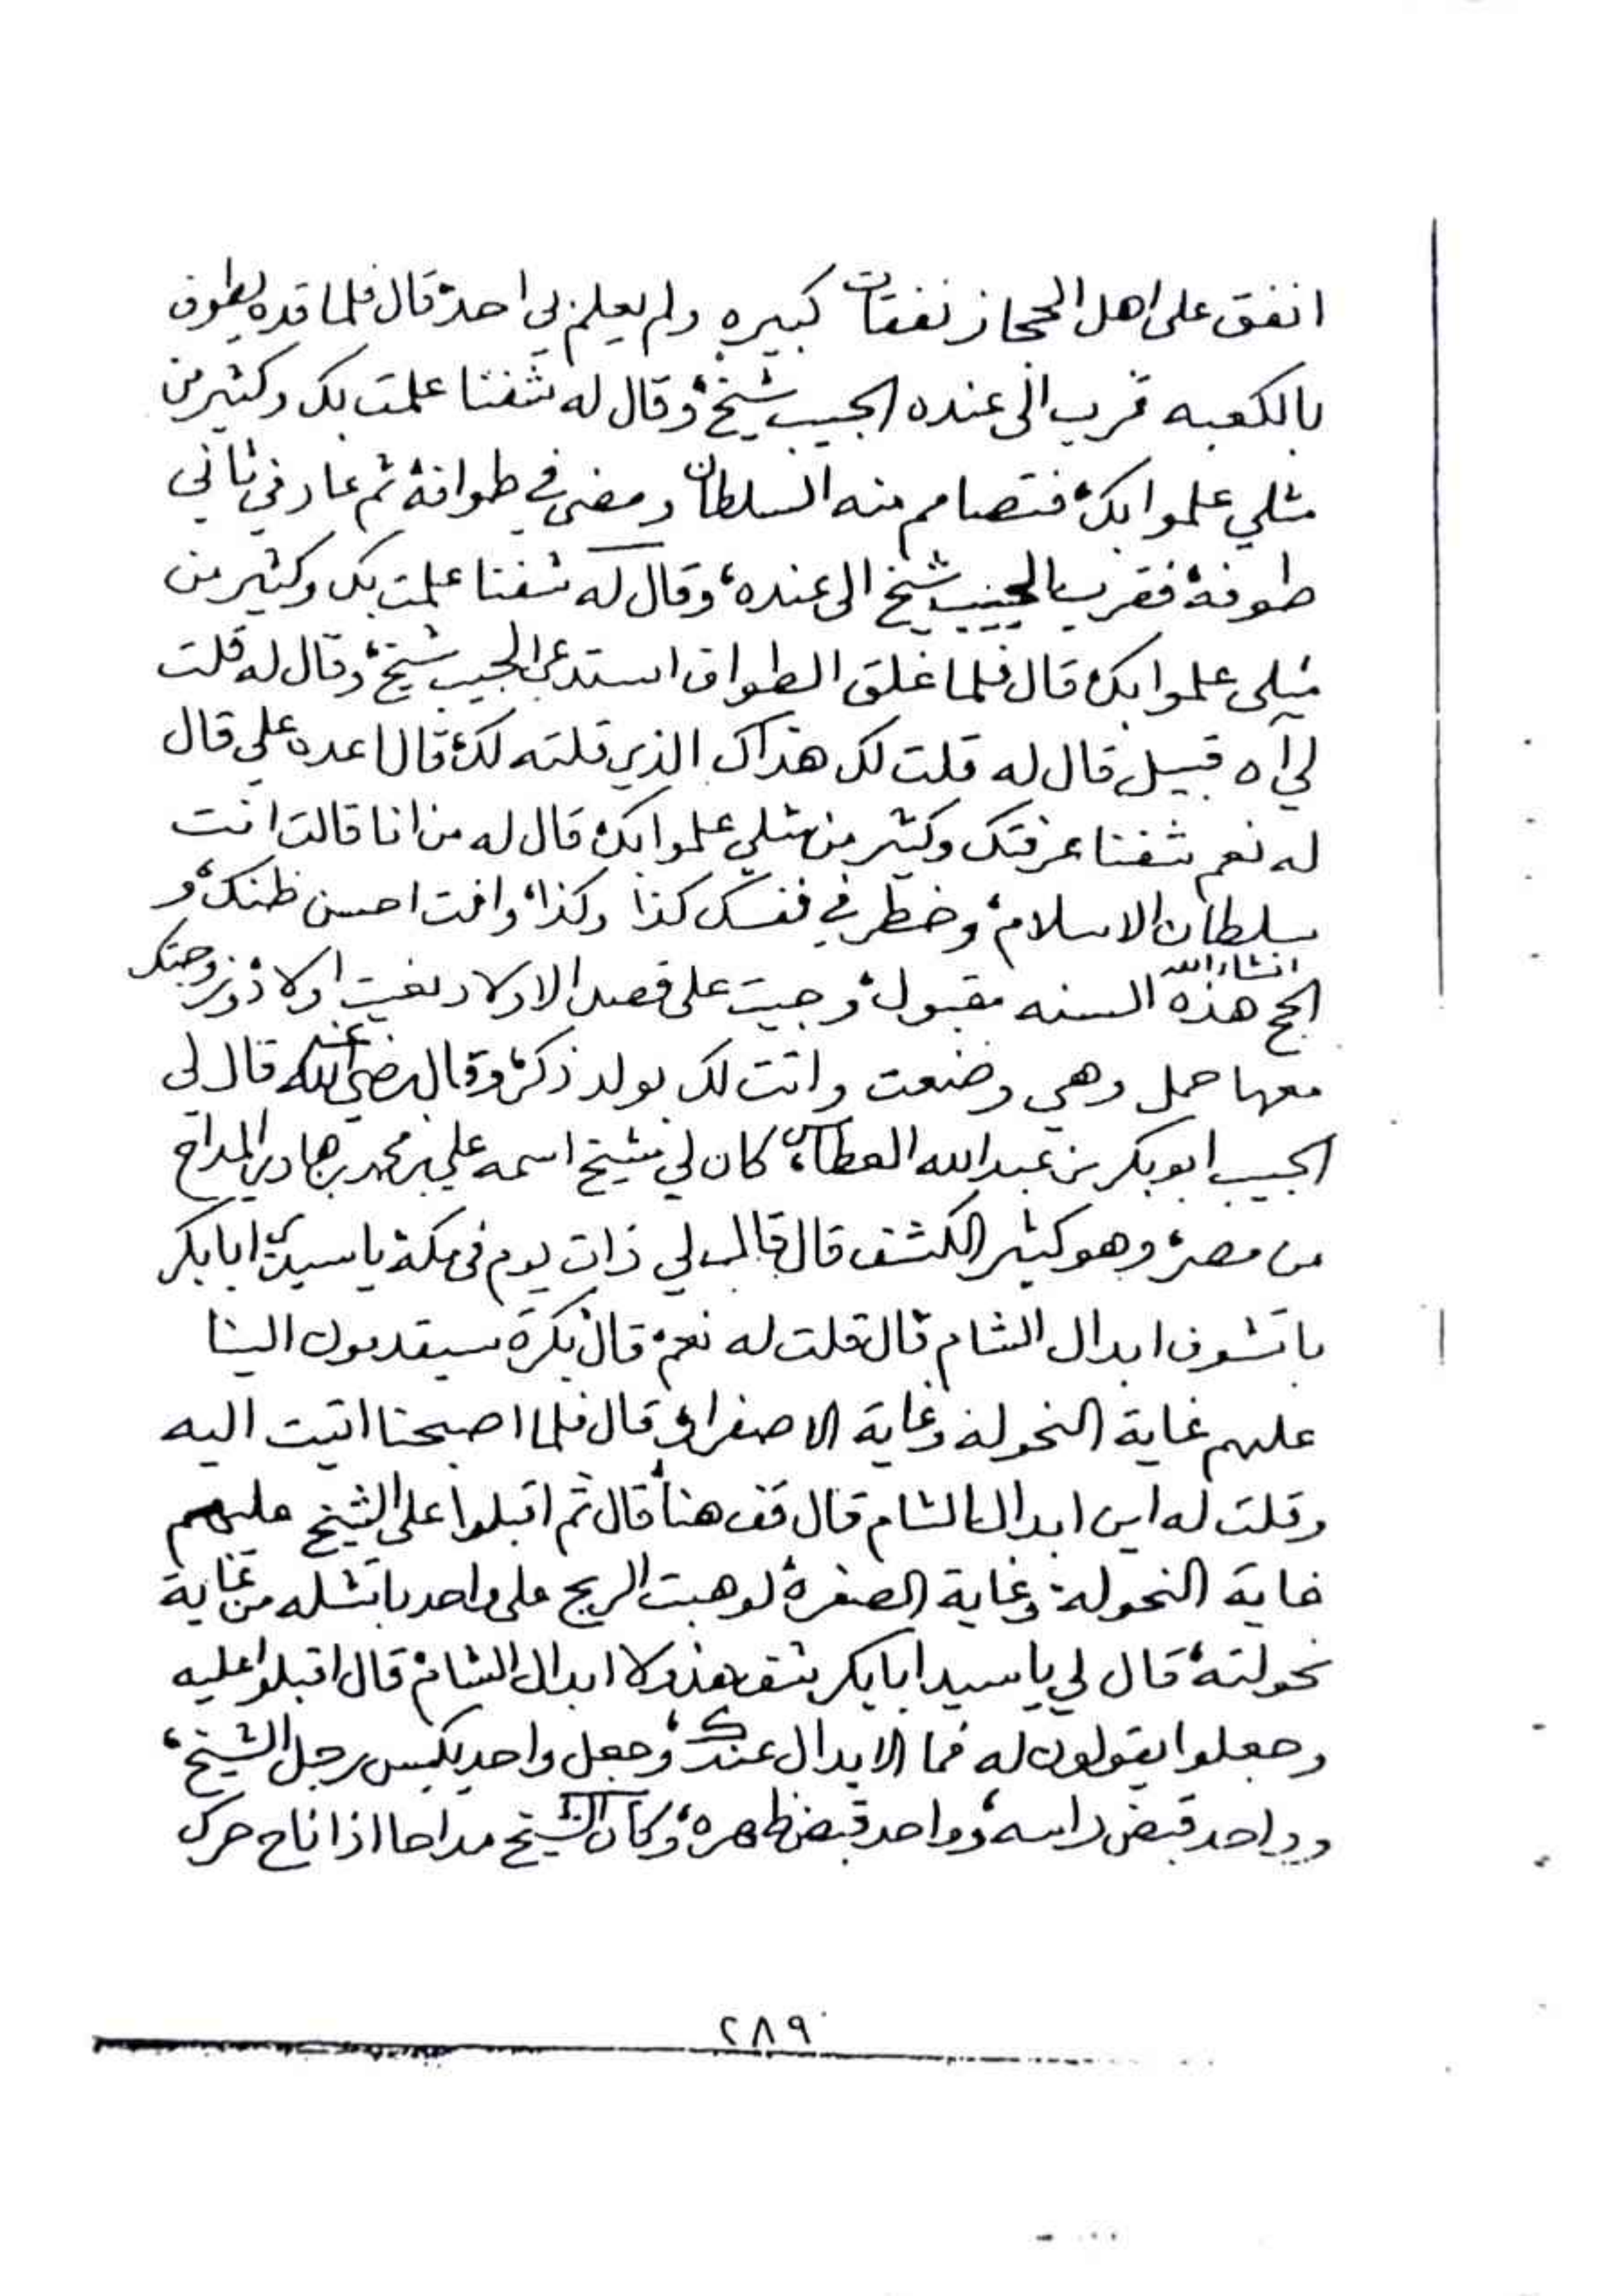 انفق على اهل الحجاز نفقات كبيره ولم يعلم بي احد، قال فلما قده يطوف
بالكعبه قرب الى عنده الحبيب شيخ، وقال له شفنا علمت بك وكثير من
مثلي علموا بك، فتصامم منه السلطان ومضى في طوافة ثم عاد في ثاني
طوفة، فقرب الحبيب شيخ الى عنده، وقال له شفنا علمت بك وكثير من
مثلي علموا بك، قال فلما غلق الطواف استدعى الحبيب شيخ، وقال له قلت
لي آه قبيل قال له قلت لك هذاك الذي قلته لك، قال اعده علي قال
له نعم شفنا عرفتك وكثير من مثلي علموا بك، قال له من انا قال انت
سلطان الاسلام، وخطر في نفسك كذا وكذا، وانت احسن ظنك، و
الحج هذه السنه انشاء الله مقبول، وجيت على فصل الاولاد وبغيت اولاد، وزوجتك
معها حمل وهي وضعت واتت لك بولد ذكر، وقال رضي الله عنه قال لي
الحبيب ابو بكر بن عبدالله العطاس، كان لي شيخ اسمه علي بن محمد بن هادي المداح
من مصر، وهو كثير الكشف قال قال لي ذات يوم في مكة يا سيدي ابا بكر
باتشوف ابدال الشام قال قلت له نعم، قال بكرة سيقدمون الينا
عليهم غاية النحولة وغاية الاصفرار، قال فلما اصبحنا اتيت اليه
وقلت له اين ابدال الشام قال قف هنا، قال ثم اقبلوا على الشيخ عليهم
غاية النحولة وغاية الصفرة، لو هبت الريح على واحد باتشله من غاية
نحولته، قال لي يا سيد ابا بكر شف هذولا ابدال الشام، قال اقبلوا عليه
وجعلوا يقولون له فما الابدال عندك، وجعل واحد يكبس رجل الشيخ،
وواحد قبض راسه، وواحد قبض ظهره، وكان الشيخ مداحا اذا ناح حرك
٢٨٩